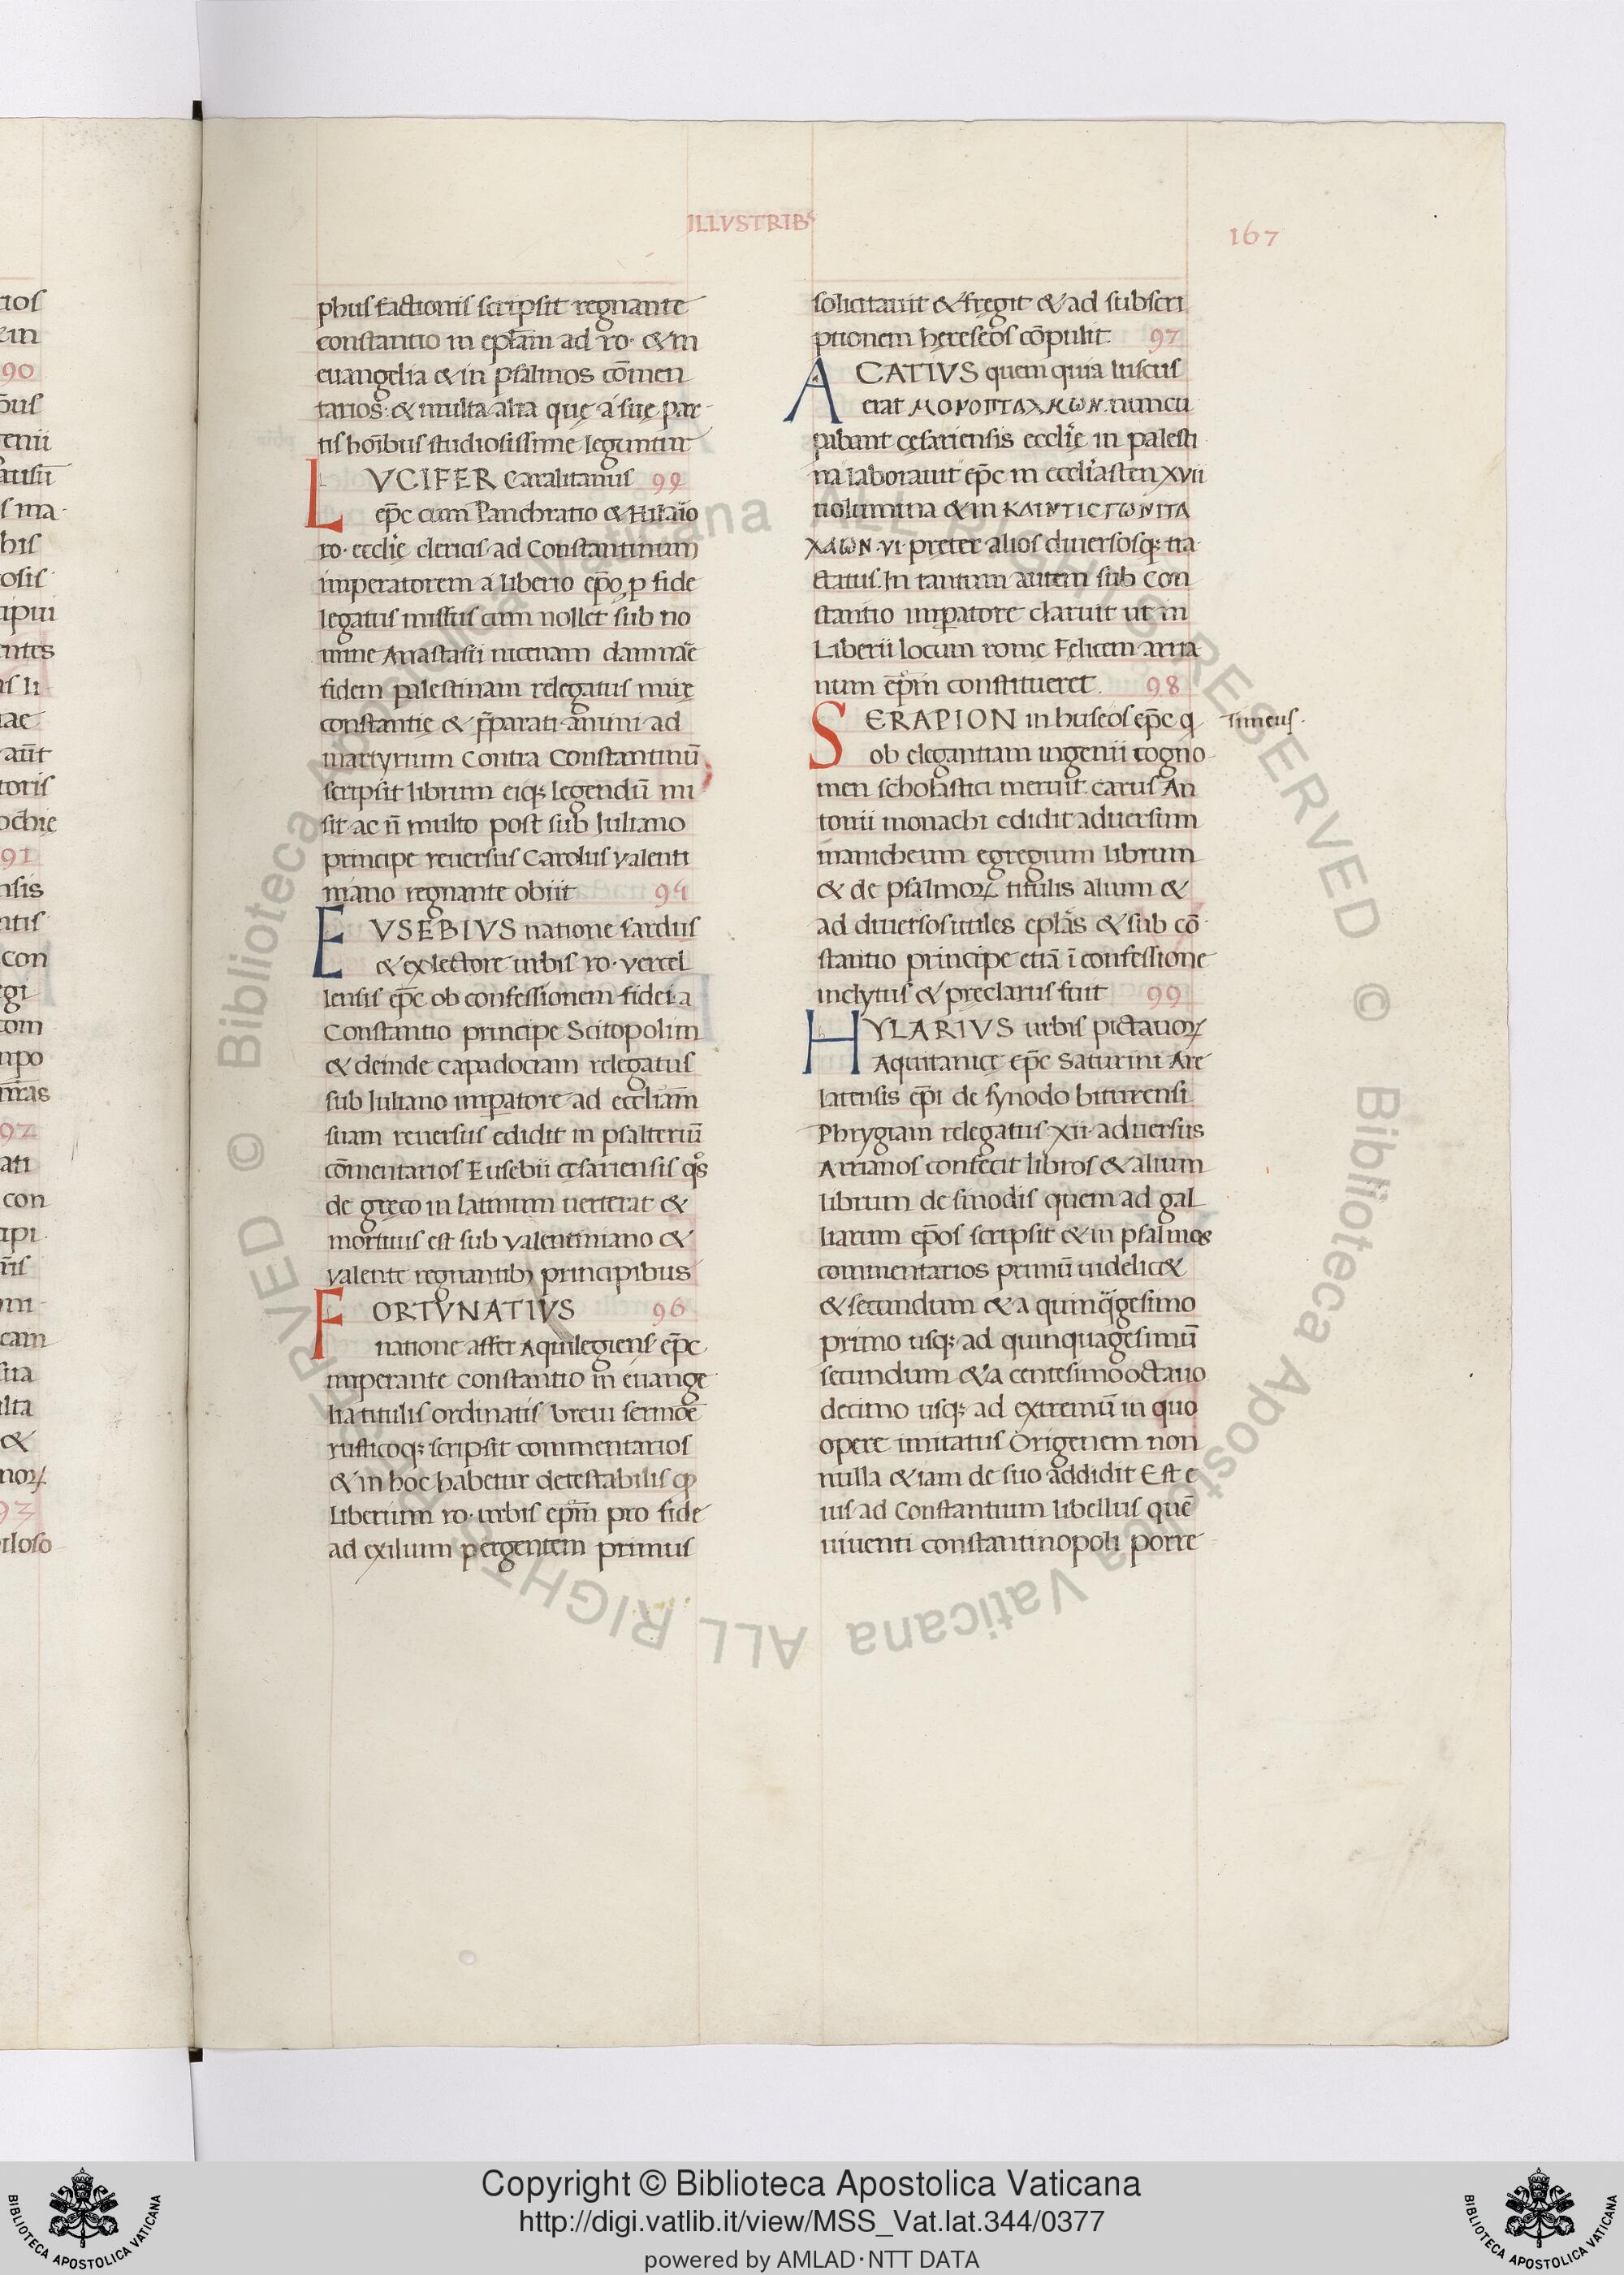 ILLVSTRIBꝰ
167
phus factionis scripsit regnante
constantio in epl̃am ad ro. & in
euangelia & in psalmos cōmen
tarios: & multa alia quę a suę par
tis hoĩbus studiosissime leguntur
LVCIFER Caralitanus 99
ep̃c cum Panchratio & Hilaĩo
ro. eccl̃ię clericis ad Constantinum
imperatorem a liberio ep̃o ꝓ fide
legatus missus cum nollet sub no
mine Anastasii nicenam damnãe
fidem palestinam relegatus mirę
constantię & p̃parati animi ad
martyrium Contra Constantinū
scripsit librum eiqꝫ legendū mi
sit ac ñ multo post sub Iuliano
principe reuersus Carolus valenti
niano regnante obiit 94
EVSEBIVS natione sardus
& ex lectore urbis ro. vercel
lensis ep̃c ob confessionem fidei a
Constantio principe Scitopolim
& deinde capadociam relegatus
sub Iuliano imꝑatore ad eccl̃iam
suam reuersus edidit in psalteriū
cōmentarios Eusebii cesariensis qͦs
de gręco in latinum uerterat &
mortuus est sub valentiniano &
valente regnantibꝫ principibus
FORTVNATIVS 96
natione affer Aquilegiens̃ ep̃c
imperante constantio in euange
lia titulis ordinatis breui sermõe
rusticoqꝫ scripsit commentarios
& in hoc habetur detestabilis ꝙ
Liberium ro. urbis ep̃m pro fide
ad exilium pergentem primus
solicitauit & fregit & ad subscri
ptionem hereseos cōpulit 97
ACATIVS quem quia luscus
erat ΜΟΝΟΠΤΑΧΜΩΝ nuncu
pabant cęsariensis eccl̃ię in palesti
na laborauit ep̃c in eccl̃iasten xvii
uolumina & in
vi preter alios diuersosqꝫ tra
ctatus. In tantum autem sub con
stantio imꝑatore claruit ut in
Liberii locum romę Felicem arria
num ep̃m constitueret. 98
SERAPION in huseos ep̃c q
Timeus.
ob elegantiam ingenii cogno
men scholastici meruit carus An
tonii monachi edidit aduersum
manicheum egregium librum
& de psalmoꝝ titulis alium &
ad diuersos utiles epl̃as & sub cō
stantio principe etiā ī confessione
inclytus & pręclarus fuit 99
HYLARIVS urbis pictauoꝝ
Aquitanicę ep̃c Saturini Are
latensis ep̃i de synodo biturensi
Phrygiam relegatus xii aduersus
Arrianos confecit libros & alium
librum de sinodis quem ad gal
liarum ep̃os scripsit & in psalmos
commentarios primū uidelic&
& secundum & a quinq̃gesimo
primo usqꝫ ad quinquagesimū
secundum & a centesimo octauo
decimo usqꝫ ad extremū in quo
opere imitatus Origenem non
nulla & iam de suo addidit Est e
ius ad Constantium libellus quē
uiuenti constantinopoli porre
Copyright © Biblioteca Apostolica Vaticana
http://digi.vatlib.it/view/MSS_Vat.lat.344/0377
powered by AMLAD·NTT DATA